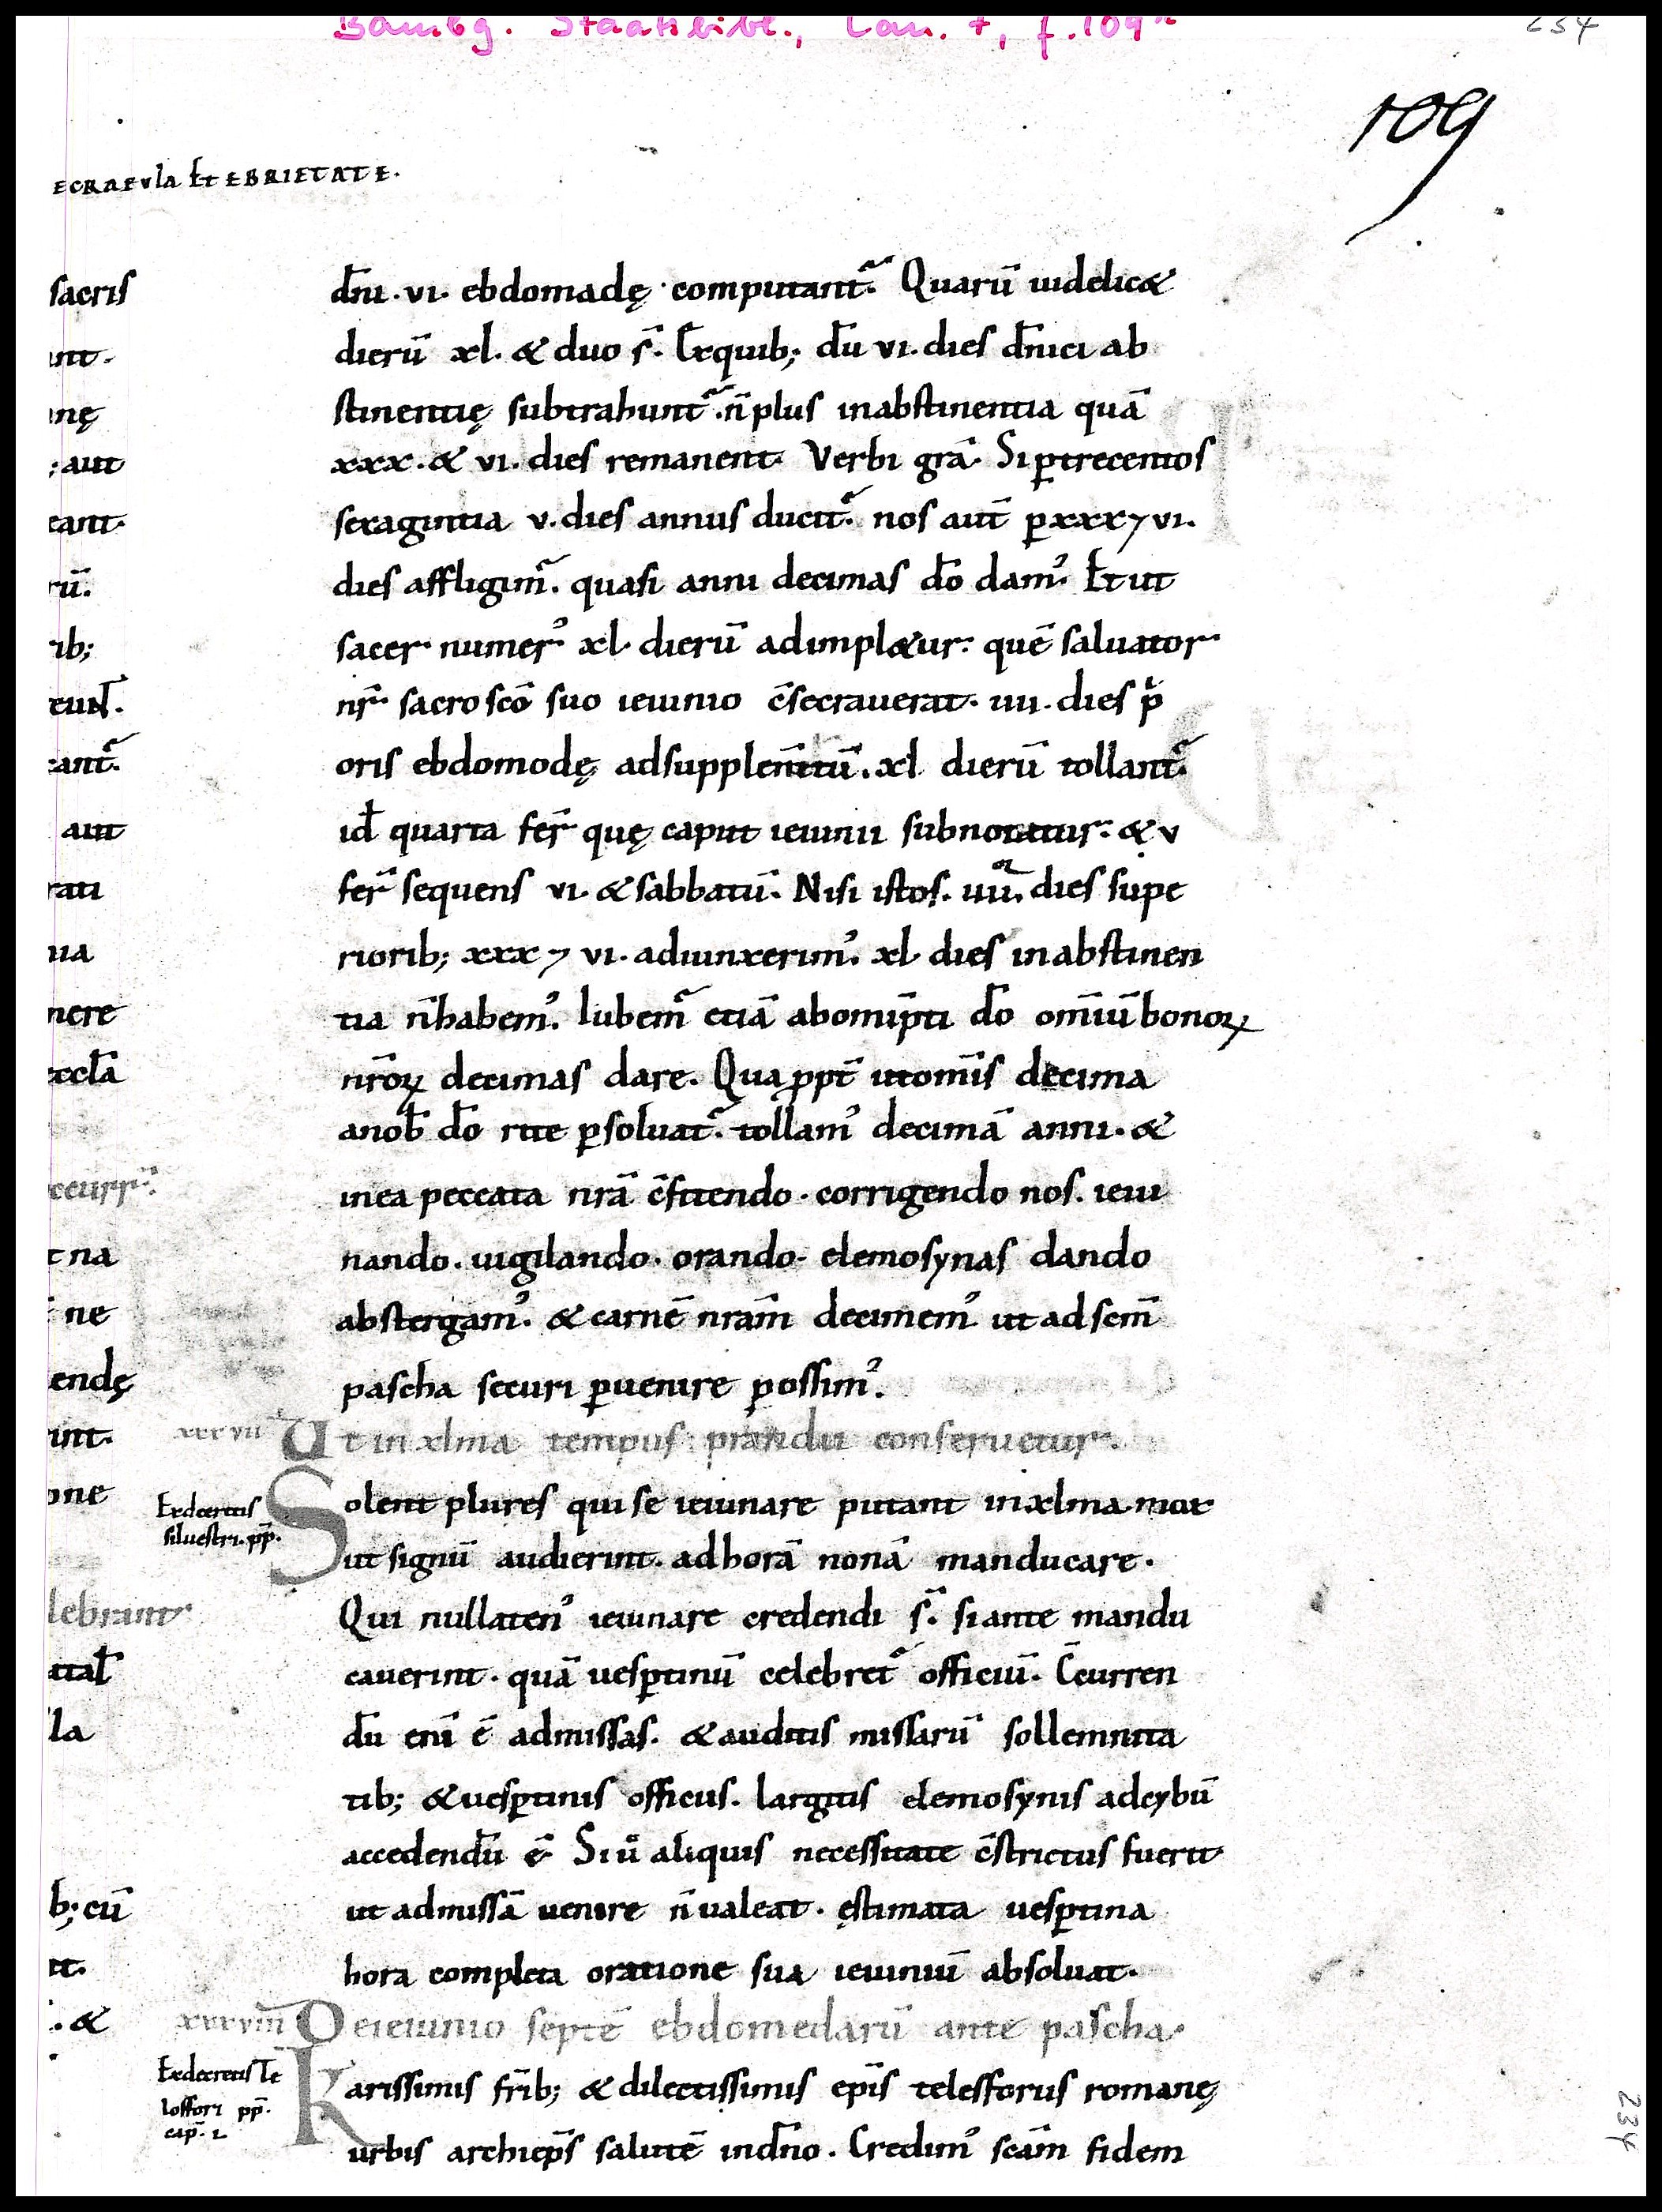 Bambg. Staatsbibl., Can. 7, f. 109r
234
109
ECRAEVLA Et EBRIETATE.
dn̄i . vi . ebdomadę . computant᷑. Quarū uidelic&
dierū xl. & duo s̄. Ex quib; dū vi . dies dn̄ici ab
stinentię subtrahunt᷑ . n̄ plus in abstinentia quā
xxx . & vi . dies remanent. Verbi grā. Si ꝑ trecentos
sexaginta v . dies annus ducit᷑. nos aut̄ ꝑ xxx ⁊ vi.
dies affligim᷑. quasi anni decimas dō damꝰ. Et ut
sacer numerꝰ xl dierū adimpl&ur. quē saluator
nr̄ sacro scō suo ieiunio c̄secrauerat. iiii . dies pͥ
oris ebdomodę ad supplem̄tū . xl dierū tollant᷑.
id̄ quarta fer̄ quę caput ieiunii subnotatur. & v
fer̄ sequens vi . & sabbatū. Nisi istos . iiii . dies supe
riorib; xxx ⁊ vi . adiunxerimꝰ. xl dies in abstinen
tia n̄ habemꝰ. Iubem᷑ etiā ab omīpti dō om̄iū bonoꝝ
nr̄oꝝ decimas dare. Qua ꝓpt̄ ut om̄is decima
a nob̄ dō rite ꝑsoluat᷑. tollamꝰ decimā anni . &
in ea peccata nrā c̄fitendo . corrigendo nos . ieiu
nando . uigilando . orando . elemosynas dando
abstergamꝰ. & carnē nrām decimemꝰ ut ad scm̄
pascha securi ꝑuenire possimꝰ.
xxxvii Ut in xlma tempus prandii conseruetur.
Ex decretis
siluestri . pp̄.
Solent plures qui se ieiunare putant in xlma mox
ut signū audierint . ad horā nonā manducare.
Qui nullatenꝰ ieiunare credendi s̄. si ante mandu
cauerint . quā uesꝑtinū celebret᷑ officiū. C̄curren
dū enī ē ad missas . & auditis missarū sollemnita
tib; & uesꝑtinis officiis . largitis elemosynis ad cybū
accedendū ē. Si ů aliquis necessitate c̄strictus fuerit
ut ad missā uenire n̄ ualeat . ęstimata uesꝑtina
hora completa oratione sua ieiuniū absoluat.
xxxviii De ieiunio septē ebdomedarū ante pascha.
Ex decretis Te
losfori pp̄.
cap̄ . i
Karissimis fr̄ib; & dilectissimis ep̄is telesforus romanę
urbis archiep̄s salutē in dn̄o . Credimꝰ scām fidem
sacris
nę
aut
eant.
rū.
ib;
ant᷑.
aut
rati
ua
nere
eccl̄a
na
ne
endę
int.
one
lebrant
la
b; cū
&
234